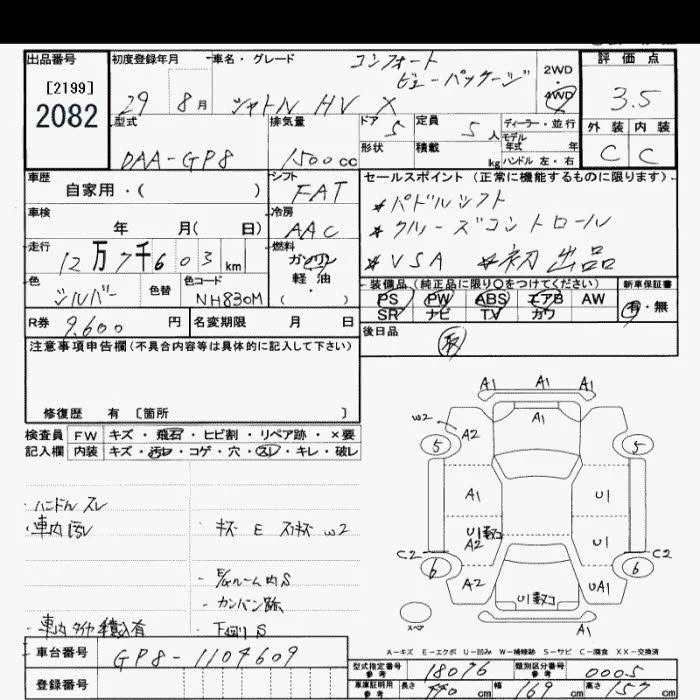 出品番号 初度登録年月 車名・グレード コンフォート 評価点
[2199] ビューパッケージ 2WD
2082 29 8月 シャトル HV X 4WD 3.5
型式 排気量 ドア 5 定員 5人 ディーラー・並行 外装 内装
モデル年式 年
DAA-GP8 1500cc 形状 積載 kg ハンドル 左・右 C C
車歴 シフト セールスポイント(正常に機能するものに限ります)
自家用・( ) FAT *パドルシフト
車検 冷房 *クルーズコントロール
年 月( 日) AAC *VSA *初出品
走行 燃料
12万7千603km ガソリン
軽油・
( )
色 色替 色コード 装備品(純正品に限り○をつけてください) 新車保証書
シルバー NH830M PS PW ABS エアB AW 有・無
SR ナビ TV カワ
R券 9,600円 名変期限 月 日 後日品 取
注意事項申告欄(不具合内容等は具体的に記入して下さい)
修復歴 有 〔箇所 〕
検査員 FW キズ・飛石・ヒビ割・リペア跡・×要
記入欄 内装 キズ・汚レ・コゲ・穴・スレ・キレ・破レ
A1 A1 A1
W2 A2 A1
5 5
A1 U1
U1数コ
A2 U1
C2 C2
6 6
A2 UA1
U1数コ
スペア A1
・ハンドルスレ
・車内汚レ ・キズ E スリキズ W2
・E/gルーム内S
・カンバン跡
・車内タイヤ積込有 ・下回りS
A-キズ E-エクボ U-凹み W-補修跡 S-サビ C-腐食 XX-交換済
車台番号 GP8-1104609 型式指定番号 参考 18076 類別区分番号 参考 0005
登録番号 車庫証明用 参考 長さ 440cm 幅 169cm 高さ 157cm